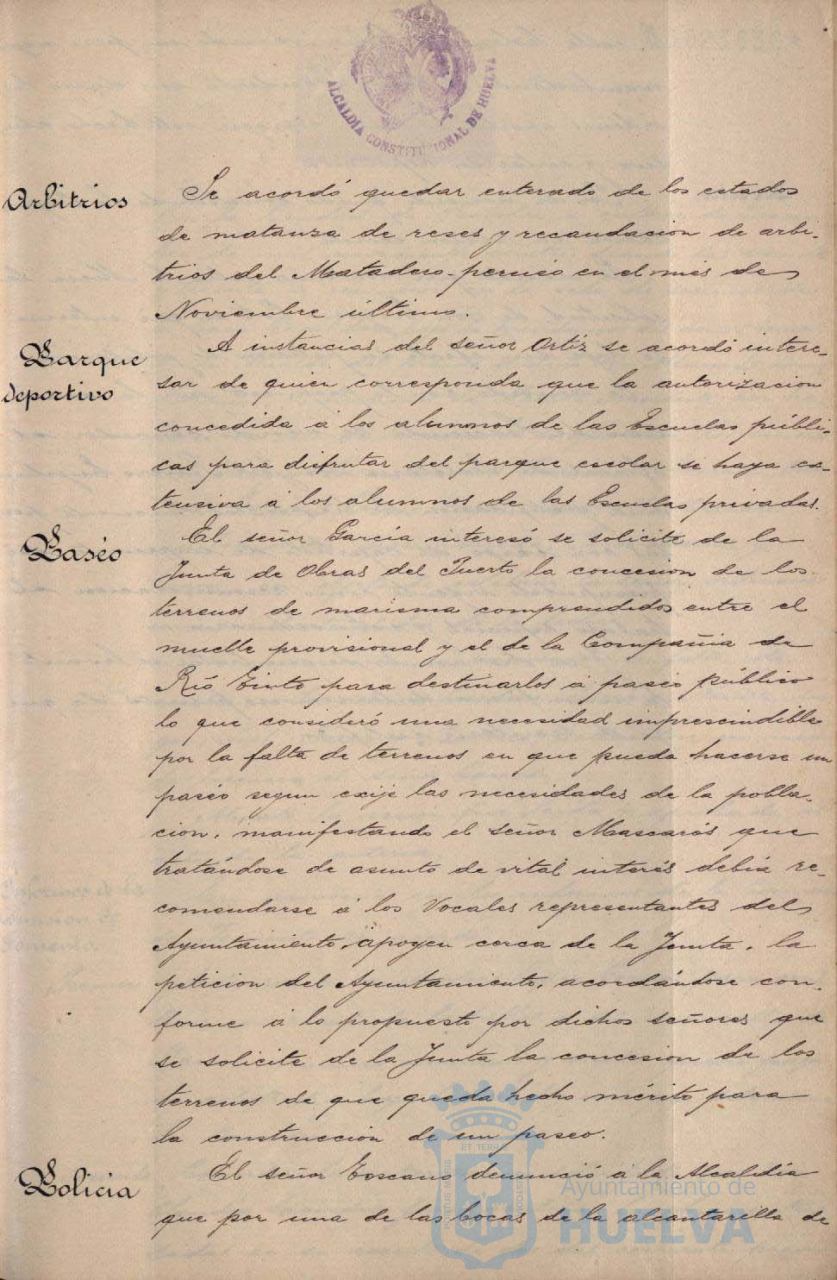 ALCALDIA CONSTITUCIONAL DE HUELVA
Arbitrios
Se acordó quedar enterado de los estados
de matanza de reses y recaudacion de arbi-
trios del Matadero-perneo en el mes de
Noviembre último.
Parque
deportivo
A instancias del señor Ortiz se acordó intere-
sar de quien corresponda que la autorizacion
concedida á los alumnos de las Escuelas públi-
cas para disfrutar del parque escolar se haga es-
tensiva á los alumnos de las Escuelas privadas.
Paséo
El señor García interesó se solicite de la
Junta de Obras del Puerto la concesion de los
terrenos de marisma comprendidos entre el
muelle provisional y el de la Compañia de
Rió Tinto para destinarlos á paséo público
lo que consideró una necesidad imprescindible
por la falta de terrenos en que pueda hacerse un
paséo segun exije las necesidades de la pobla-
cion, manifestando el señor Mascarós que
tratándose de asunto de vital interés debía re-
comendarse á los Vocales representantes del
Ayuntamiento, apoyen cerca de la Junta, la
peticion del Ayuntamiento, acordándose con-
forme á lo propuesto por dichos señores que
se solicite de la Junta la concesion de los
terrenos de que queda hecho mérito para
la construccion de un paseo.
Policia
El señor Toscano denunció á la Alcaldía
que por una de las bocas de la alcantarilla de
Ayuntamiento de
HUELVA